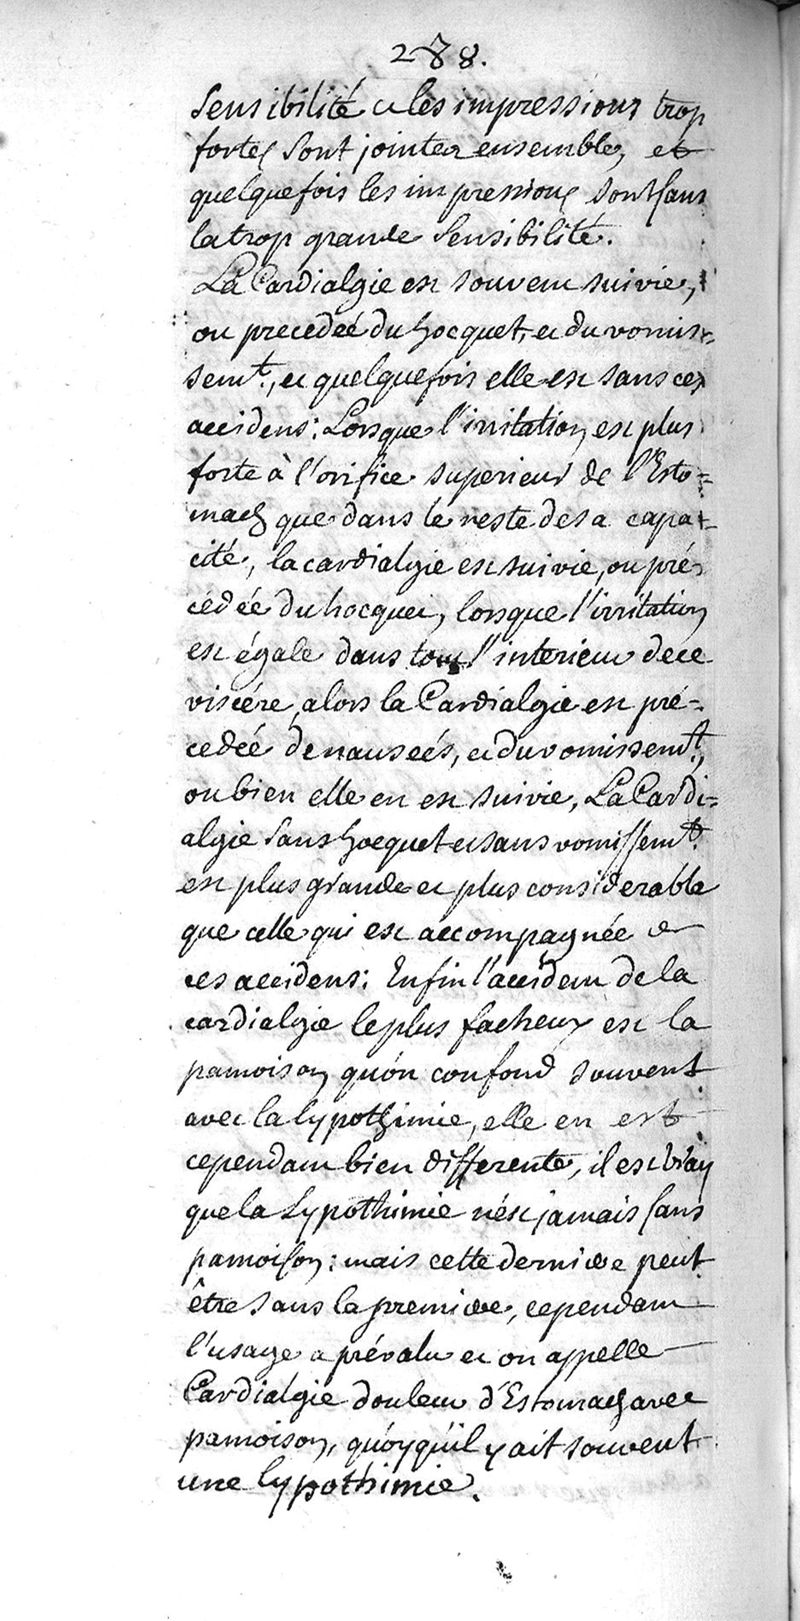 288.
sensibilité et les impressions trop
fortes sont jointes ensembles, et
quelquefois les impressions sont sans
la trop grande sensibilité.
La Cardialgie est souvent suivie,
ou precedeé du hocquet, et du vomis=
semt., et quelquefois elle est sans ces
accidens: Lorsque l'irritation est plus
forte à l'orifice superieur de l'Esto=
mach que dans le reste de sa capa=
cité, la cardialgie est suivie, ou pré
cédée du hocquet, lorsque l'irritation
est égale dans tout l'interieur de ce
viscére, alors la Cardialgie est pré=
cedeé de nauseés, et du vomissemt.,
ou bien elle en est suivie, La Cardi=
algie sans hocquet et sans vomissemt.
est plus grande et plus considerable
que celle qui est accompagnée de
ces accidens: Enfin l'accident de la
cardialgie le plus facheux est la
pamoison, qu'on confond souvent
avec la lypothimie, elle en est
cependant bien differente, il est vray
que la Lypothimie n'ést jamais sans
pamoison; mais cette derniere peut
être sans la premiere, cependant
l'usage a prévalu et on appelle
Cardialgie douleur d'Estomach avec
pamoison, quóyqu'il y ait souvent
une lypothimie.